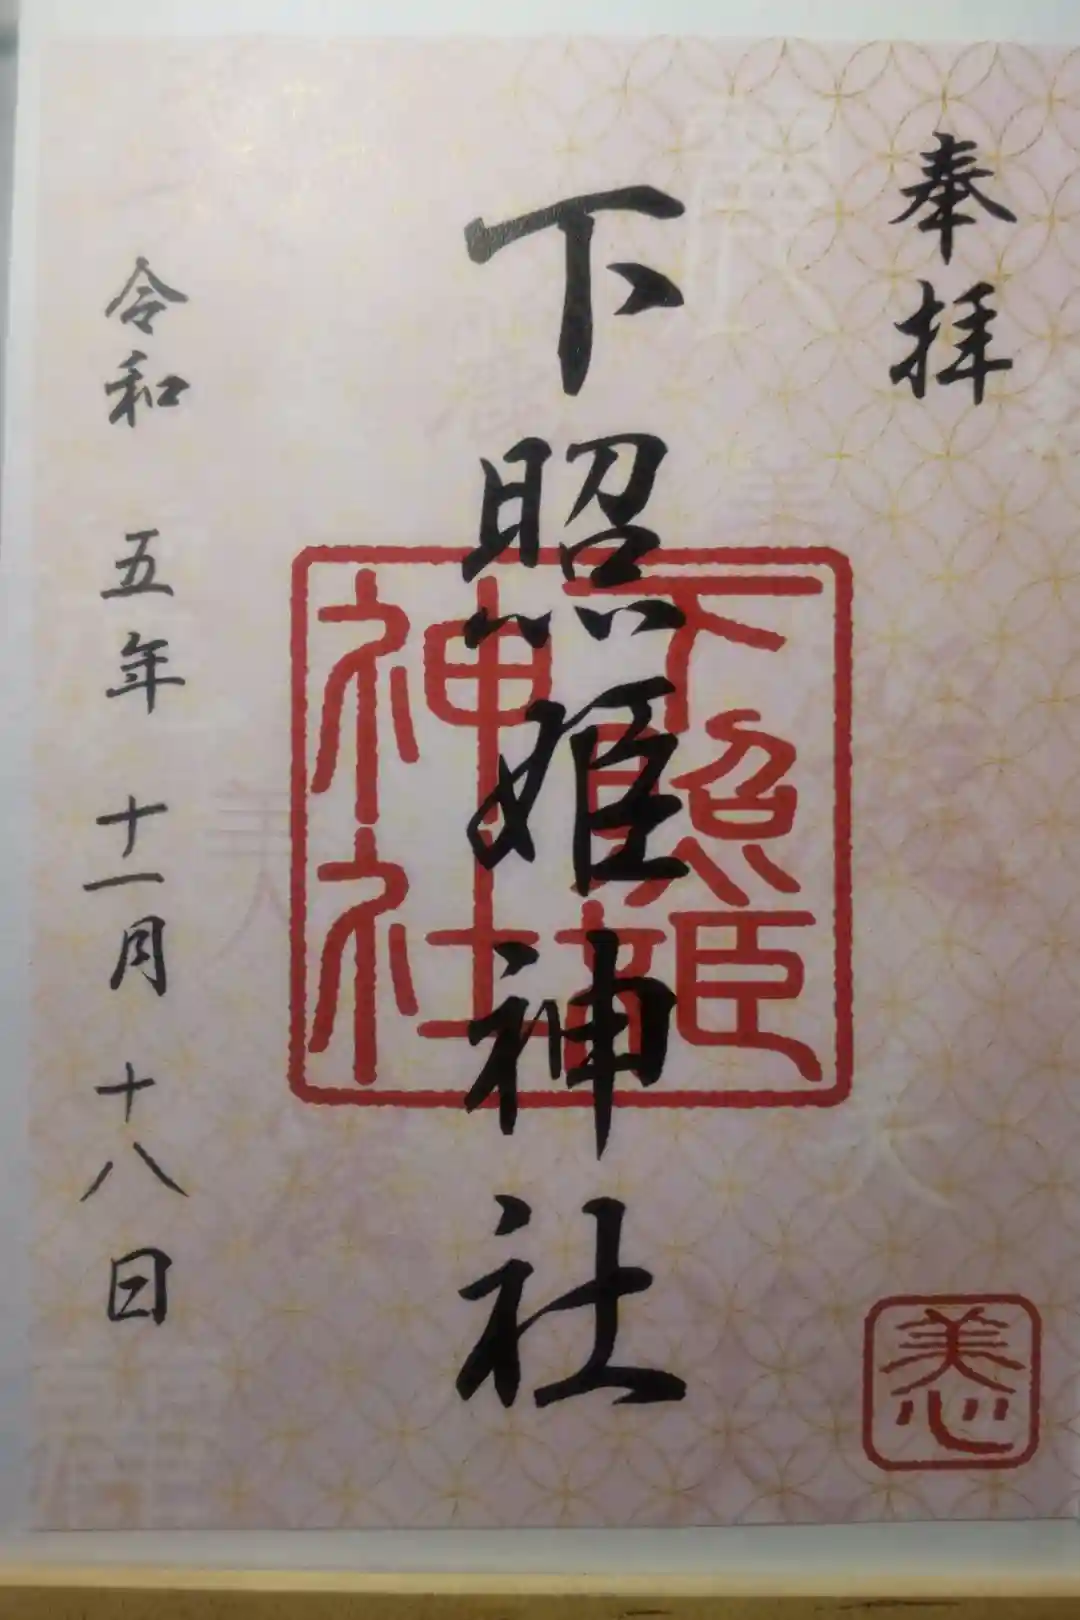 奉拝
下照姫神社
下照姫
神社
令和 五年 十一月 十八日
美心